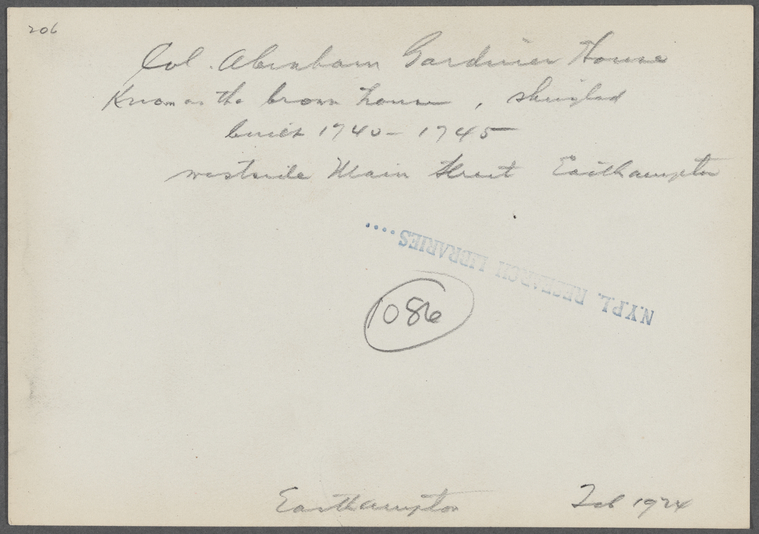 206
Col. Abraham Gardiner House
Known as the brown house, shingled
built 1740-1745
westside Main Street Easthampton
N.Y.P.L. RESEARCH LIBRARIES....
1086
Easthampton Feb 1924